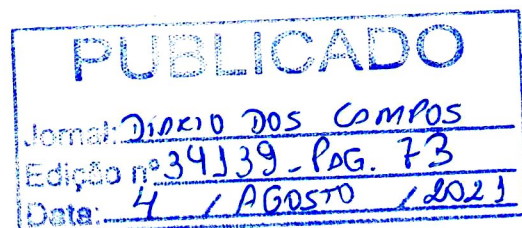 PUBLICADO
Jornal: DIÁRIO DOS CAMPOS
Edição nº 34139 - PAG. 7B
Data: 4 / AGOSTO / 2021